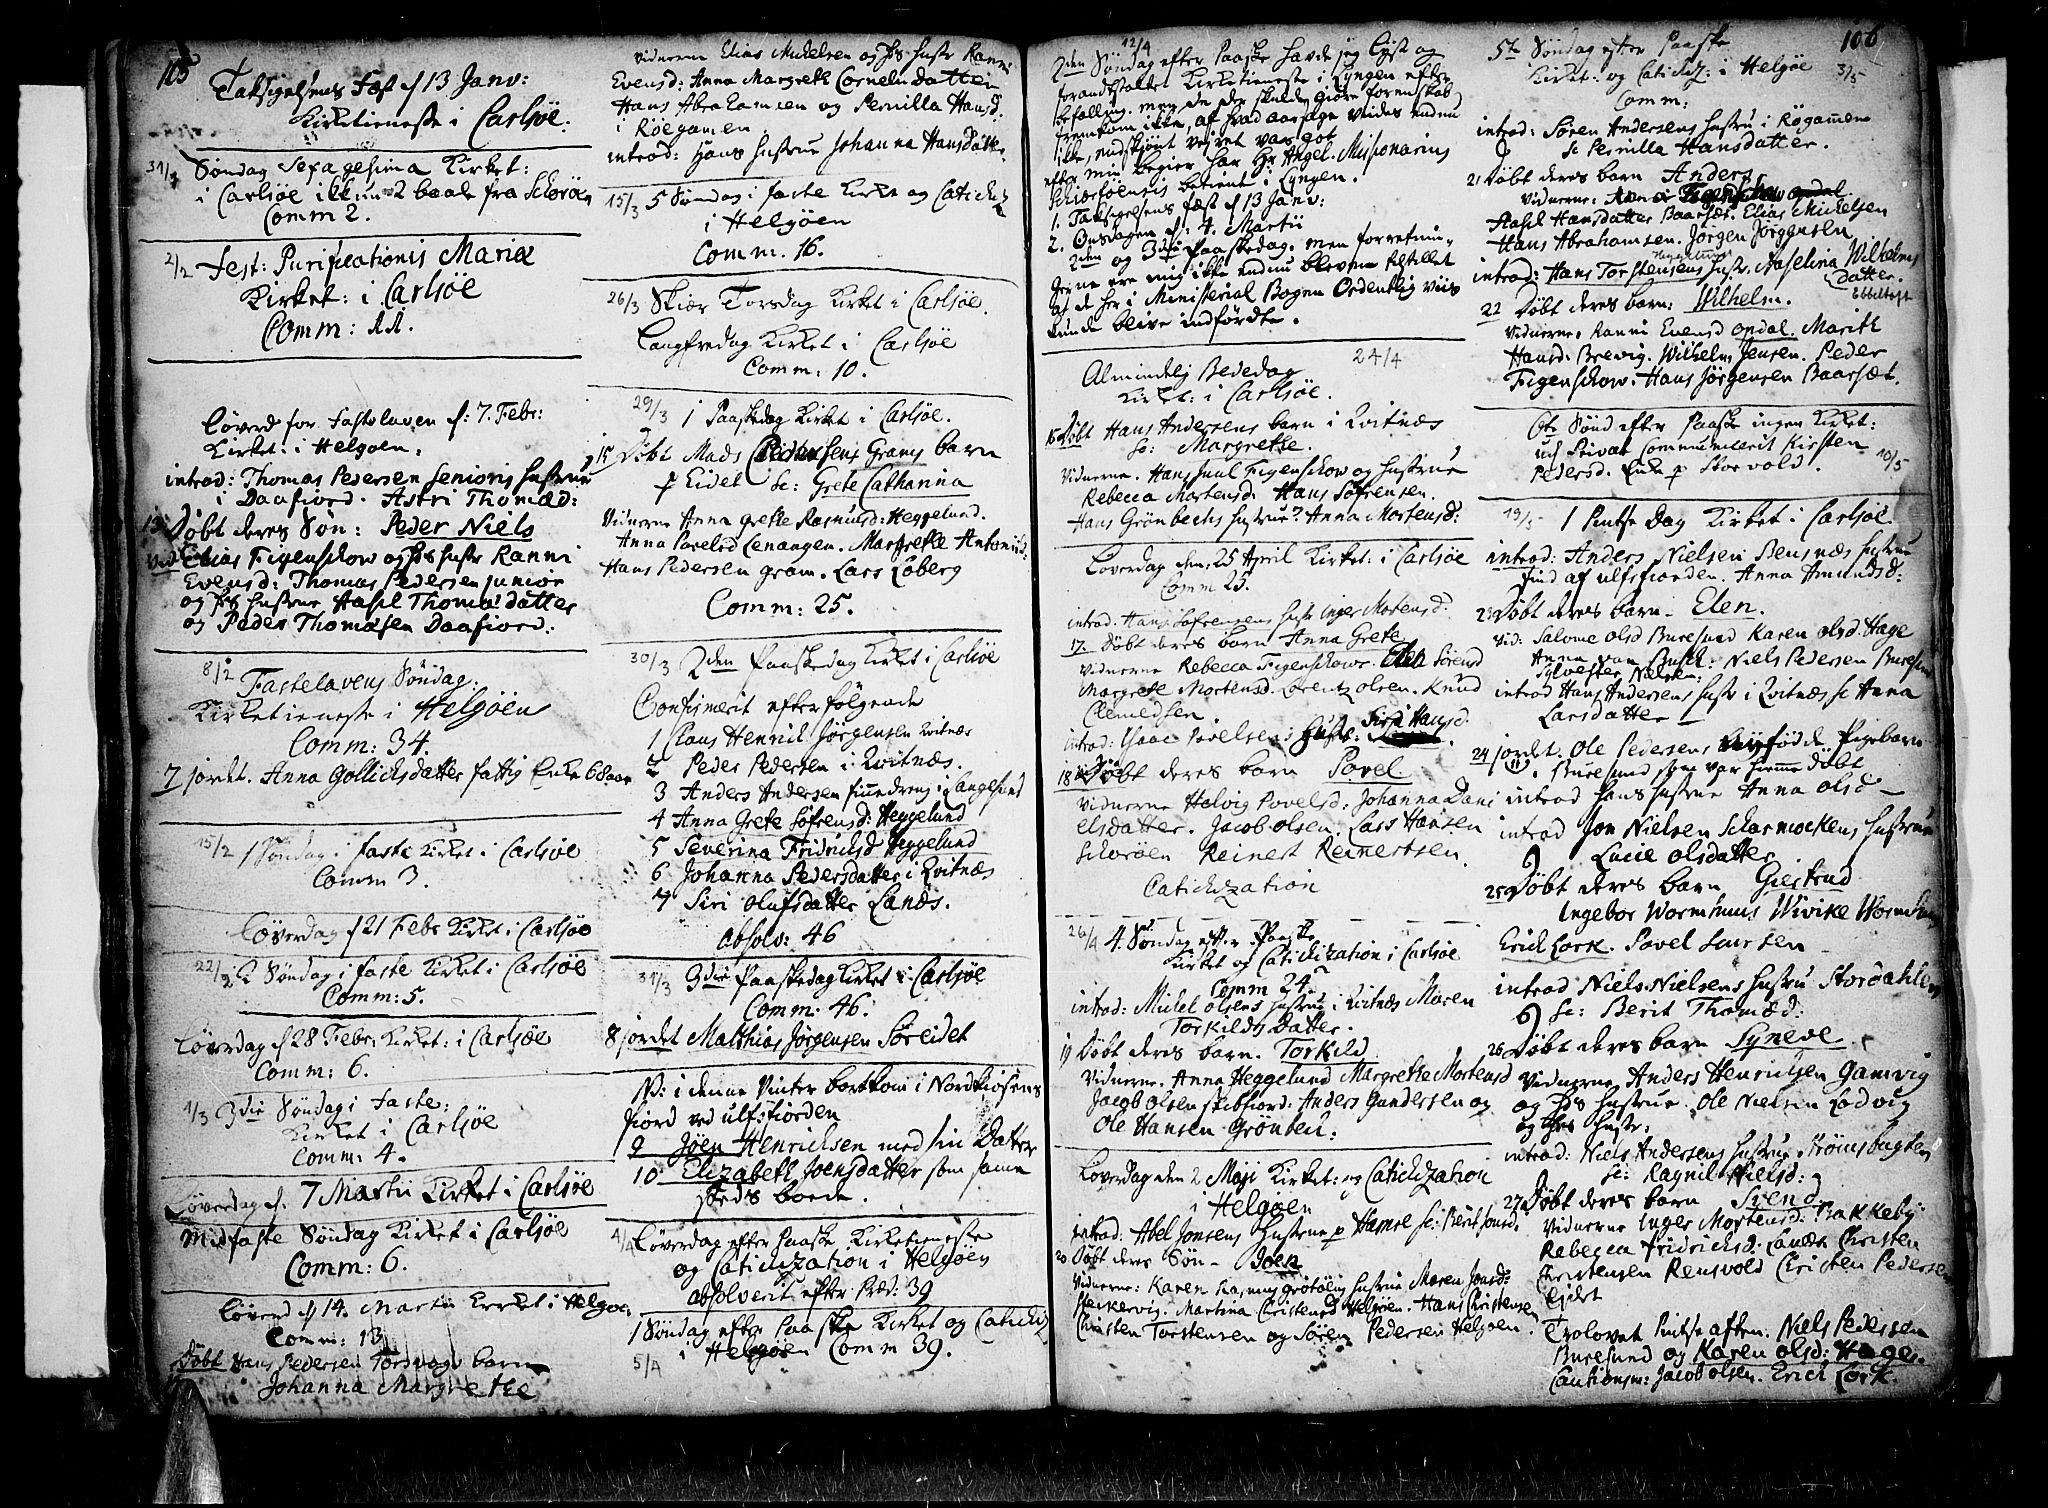 105
Taksigelsens Fæst d 13 Janv:
Kirketieneste i Carlsöe.
31/1 Söndag Sexagesima Kirket:
i Carlsöe ikkun 2 baade fra Schoröe
Comm 2.
2/2 Fest: Purificationis Mariæ
Kirket: i Carlsöe
Comm: 22.
Löverd for Fastelaven d: 7. Febr:
Kirket: i Helgöen.
introd: Thomas Pedersen Senioris Hustrue
i Daafiord. Astri Thomæd:
13 Döbt deres Sön: Peder Niels
Vid Elias Figenschow og hs hustr Ranni
Evensd: Thomas Pedersen junior
og hs hustrue Hasil Thomas datter
og Peder Thomæsen Daafiord:
8/2 Fastelavens Söndag.
Kirketieneste i Helgöen
Comm: 34.
7 jordet. Anna Gollichsdatter fattig Enke 68 aar
15/2 1 Söndag i faste Kirket i Carlsöe
Comm 3.
Löverdag d 21 Febr Kirket i Carlsöe
22/2 2 Söndag i faste Kirket i Carlsöe
Comm: 5.
Löverdag d 28 Febr: Kirket: i Carlsöe
Comm: 6.
1/3 3die Söndag i Faste:
Kirket i Carlsöe
Comm: 4.
Löverdag d. 7 Martii Kirket i Carlsöe
Midfaste Söndag Kirket i Carlsöe
Comm: 6.
Löverd d 14. Martii Kirket i Helgöe.
Comm: 13
Döbt Hans Pedersen Torsvogs barn
Johanna Margrethe
vidnerne Elias Mickelsen og hs hustr Ranni
Evensd: Anna Margrete Cornelii datter
Hans Abrahamsen og Pernilla Hansd:
i Röegamen
introd: Hans hustrue Johanna Hansdatter.
15/3 5 Söndag i faste Kirke og Catichiz
i Helgöen
Comm. 16.
26/3 Skier Torsdag Kirket i Carlsöe.
Langfredag Kirket i Carlsöe
Comm: 10.
29/3 1 Paaskedag Kirket i Carlsöe.
15 Döbt Mads Pedersens Grams barn
p Eidet Sc: Grete Catharina
Vidnerne Anna Grethe Rasmusd: Heggelund.
Anna Povelsd Lenangen. Margrethe Antonisd:
Hans Pedersen Gram. Lars Loberg
Comm: 25.
30/3 2den Paaskedag Kirket i Carlsöe
Confirmerit efterfölgende
1 Claus Henrich Jörgensen Kvitnæs
2 Peder Pedersen i Kvitnæs.
3 Anders Andersen finnedreng i Langesund
4 Anna Grete Söfrensd: Heggelund
5 Severina Fridrichsd Heggelund
6 Johanna Pedersdatter i Kvitnæs
7 Siri Olufsdatter Lanæs.
absolv: 46
31/3 3die Paaskedag Kirket i Carlsöe
Comm: 46.
8 jordet Matthias Jörgensen Söreidet
NB: i denne Vinter bortkom i Nordkiosens
fiord ved ulfsfiorden
9 Joen Henrichsen med sin Datter
10 Elizabeth Joensdatter som samme
steds boede.
4/4 Löverdag efter Paaske Kirketieneste
og Catichization i Helgöen
absolverit efter Præd: 39
1 Söndag efter Paaske Kirket og Catichiz
i Helgöen Comm 39.
5/4
12/4
2den Söndag efter Paaske havde jeg lyst og
forandstaltet Kirketieneste i Lyngen efter
befalling. men de der skulde giöre forenskab
fremkom ikke, af hvad aarsage vides endnu
ikke, endskiönt vejret var got
efter min begier har Hr Angel. Missionarius
Schierföensis betient i Lyngen.
1. Taksigelsens fæst d 13 Janv:
2. Onsdagen d: 4. Martii
2den og 3die Paaskedag. men forretnin-
gerne ere mig ikke endnu blevne tilstillet
at de her i Ministerial Bogen Ordentlig viis
kunde blive indfördte.
24/4
Almindelig Bededag
Kirket: i Carlsöe.
16 Döbt Hans Andersens barn i Kvitnæs
Sc: Margrethe.
Vidnerne. Hans Juul Figenschow og hustrue
Rebecca Mortensd: Hans Söfrensen.
Hans Grönbechs hustrue Anna Mortensd:
Löverdag den 25 April Kirket: i Carlsöe
Comm 25.
introd. Hans Söfrensens hustr Inger Mortensd.
17. Döbt deres barn Anna Grete
Vidnerne Rebecca Figenschow. Elen Sörensd
Margrete Mortensd. Lorentz olsen. Knud
Clemedsen.
introd: Isaac Povelsens hustr: Siri Hansd.
18 Döbt deres barn Povel
Vidnerne Helvig Povelsd: Johanna Dani
elsdatter. Jacob olsen. Lars Hansen
Schoröen Reinert Reinertsen.
Catichization
26/4 4. Söndag efter Paaske
Kirket og Catichization i Carlsöe
Comm 24.
introd: Michel olsens hustrue i Kvitnæs Maren
Torkilds Datter.
19 Döbt deres barn. Torkild
Vidnerne. Anna Heggelund Margrethe Mortensd
Jacob olsen skibfiord: Anders Gundersen og
Ole Hansen Grönbech:
Löverdag den 2 Maji Kirket: og Catichization
i Helgöen
introd: Abel Jonsens hustrue p Hamre Sc: Berit Jonsd.
20 Döbt deres Sön - Joen
Vidnerne: Karen Rasmus Grötöens hustrue Maren Jonsd:
Christen Torstensen og Sören Pedersen Helgöen.
106
5te Söndag efter Paaske
Kirket: og Catichiz: i Helgöe 3/5
Comm:
introd: Sören Andersens hustru i Rögamme
Sc Pernilla Hansdatter.
21 Döbt deres barn Anders
Hasel Hansdatter Baarset. Elias Mickelsen
Hans Abrahamsen. Jörgen Jörgensen
introd: Hans Torstensens hustr. Aaselina Wilhelms
Datter.
Ebbeltoft
22 Döbt deres barn: Wilhelm.
Vidnerne. Ranni Evensd opdal. Marith
Hansd: Brevig. Wilhelm Jensen. Peder
Figenschow. Hans Jörgensen Baarset.
6te Sönd efter Paaske ingen Kirket:
uden Privat Communicerit Kirsten
Pedersd. Enke p Storvold. 10/5
19/5 1 Pintse Dag Kirket i Carlsöe.
introd: Anders Nielsen Bensnæs hustrue
find af ulfsfiorden. Anna Amundsd:
23 Döbt deres barn - Elen.
Vid: Salome olsd Buresund Karen olsd. Hage
Anna van Busch. Niels Pedersen Buresund
Sylvester Nielsen.
introd Hans Andersens hustr i Kvitnæs Sc Anna
Larsdatter -
24 jordet. Ole Pedersens nyfödde Pigebarn
i Buresund som var hiemme döbt
introd hans hustrue Anna olsd -
introd Jon Nielsen Skarmockens hustrue
Lucie olsdatter
25 Döbt deres barn Giertrud
Ingebor Wormhuus Wivike Wormhuus
Erich Lork. Povel Larsen
introd Niels Nielsens hustru Stordahlen
Sc: Berit Thomæd:
26 Döbt deres barn Syneve
Vidnerne Anders Henrichsen Gamvig
og hs hustrue. Ole Nielsen Lodvig
og hs hustr:
introd: Niels Andersens hustrue Strömsbugten
Sc: Ragnil Nielsd:
27 Döbt deres barn Svend
Vidnerne Inger Mortensd: Bakkeby
Rebecca fridrichsd: Lanæs Christen
Christensen Rensvold Christen Pedersen
Ejdet
Trolovet Pintse aften. Niels Pedersen
Buresund og Karen olsd: Hage.
Cautionsm: Jacob olsen. Erich Lork.